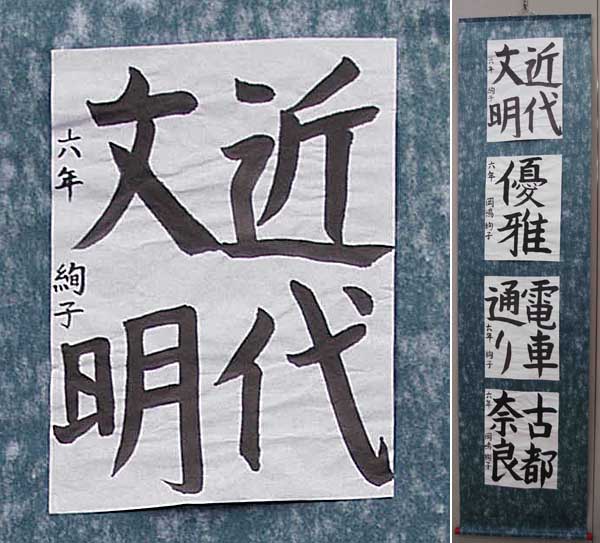 近代
文明
六年 絢子
近代
文明
六年 絢子
優雅
六年 岡嶋 絢子
電車
通り
六年 絢子
古都
奈良
六年 岡嶋 絢子